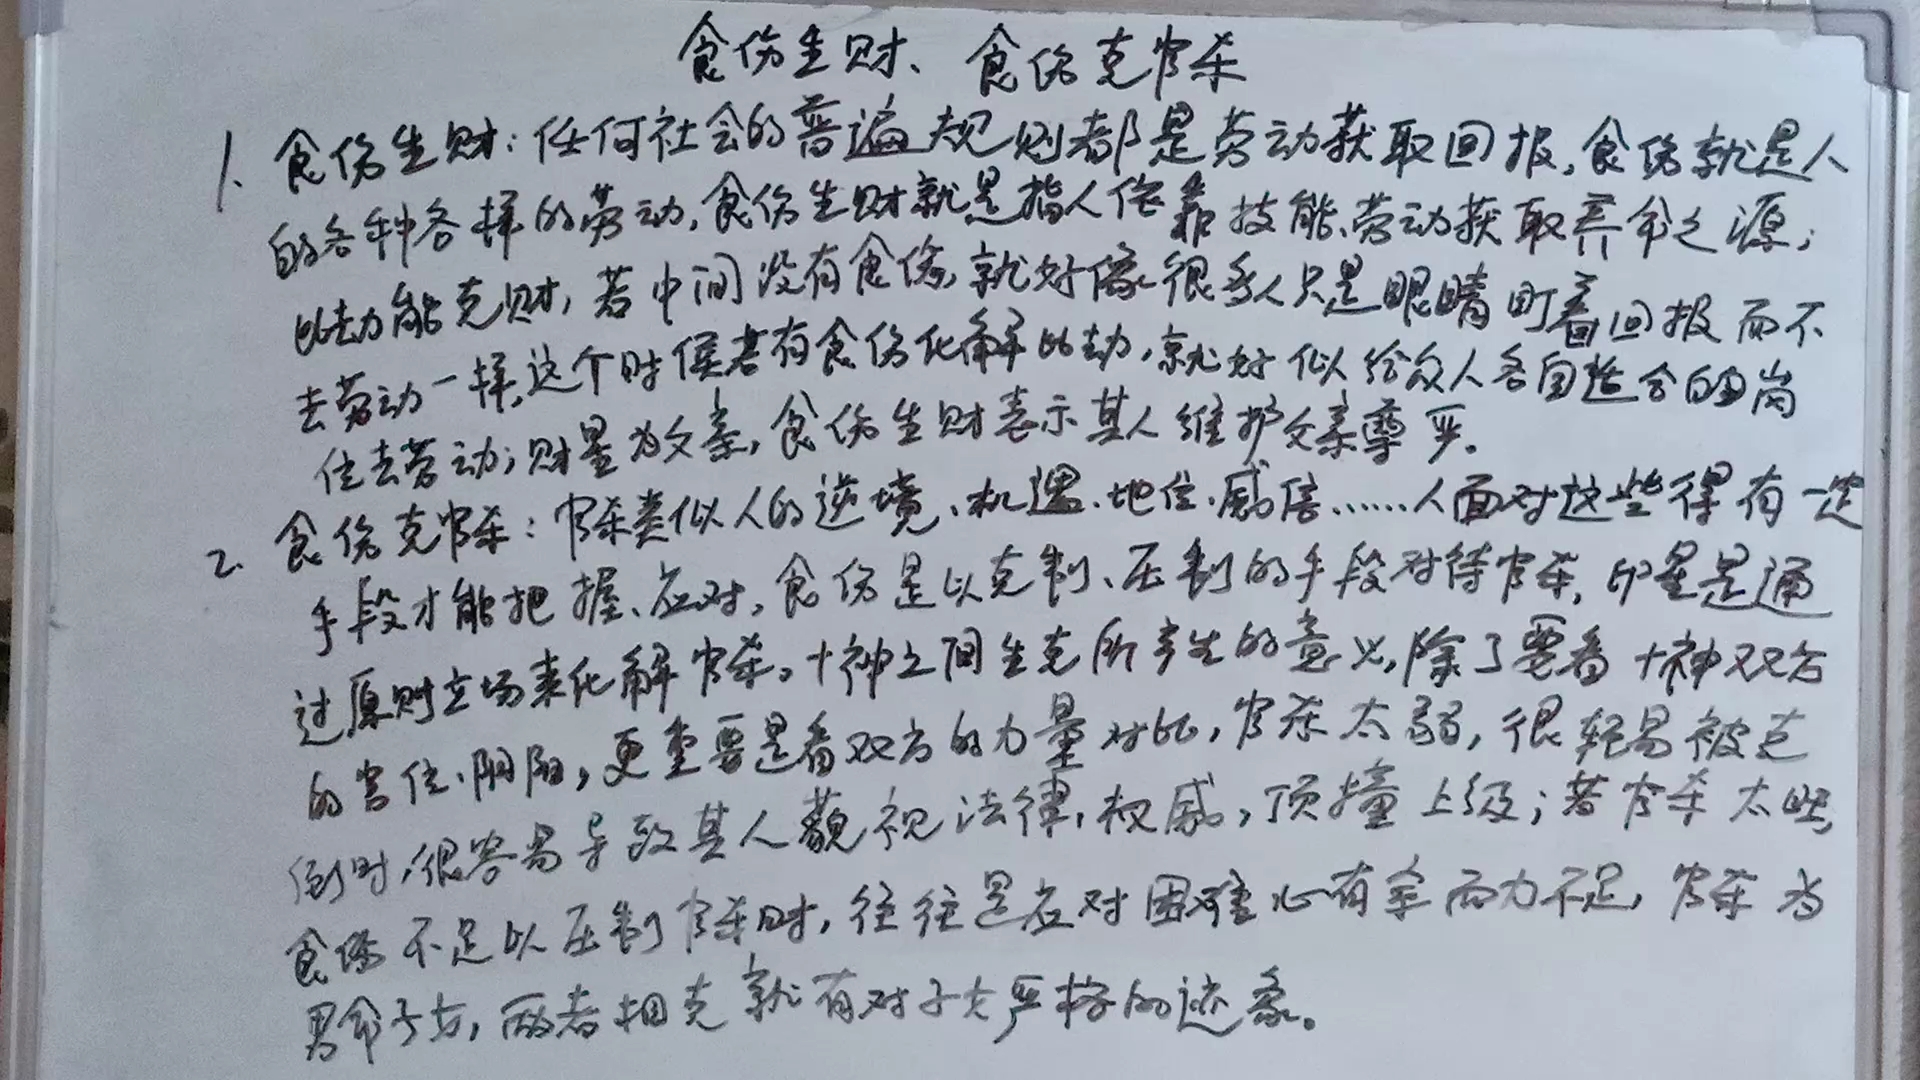 食伤生财、食伤克官杀
1、食伤生财：任何社会的普遍规则都是劳动获取回报，食伤就是人
的各种各样的劳动，食伤生财就是指人依靠技能、劳动获取养命之源；
比劫能克财，若中间没有食伤，就好像很多人只是眼睛盯着回报而不
去劳动一样，这个时候若有食伤化解比劫，就好似给众人各自适合的岗
位去劳动；财星为父亲，食伤生财表示其人维护父亲尊严。
2、食伤克官杀：官杀类似人的逆境、机遇、地位、威信……人面对这些得有一定
手段才能把握、应对，食伤是以克制、压制的手段对待官杀，印星是通
过原则立场来化解官杀。十神之间生克所产生的意义，除了要看十神双方
的宫位、阴阳，更重要是看双方的力量对比，官杀太弱，很轻易被克
倒时，很容易导致其人藐视法律，权威，顶撞上级；若官杀太旺，
食伤不足以压制官杀时，往往是应对困难心有余而力不足，官杀为
男命子女，两者相克就有对子女严格的迹象。